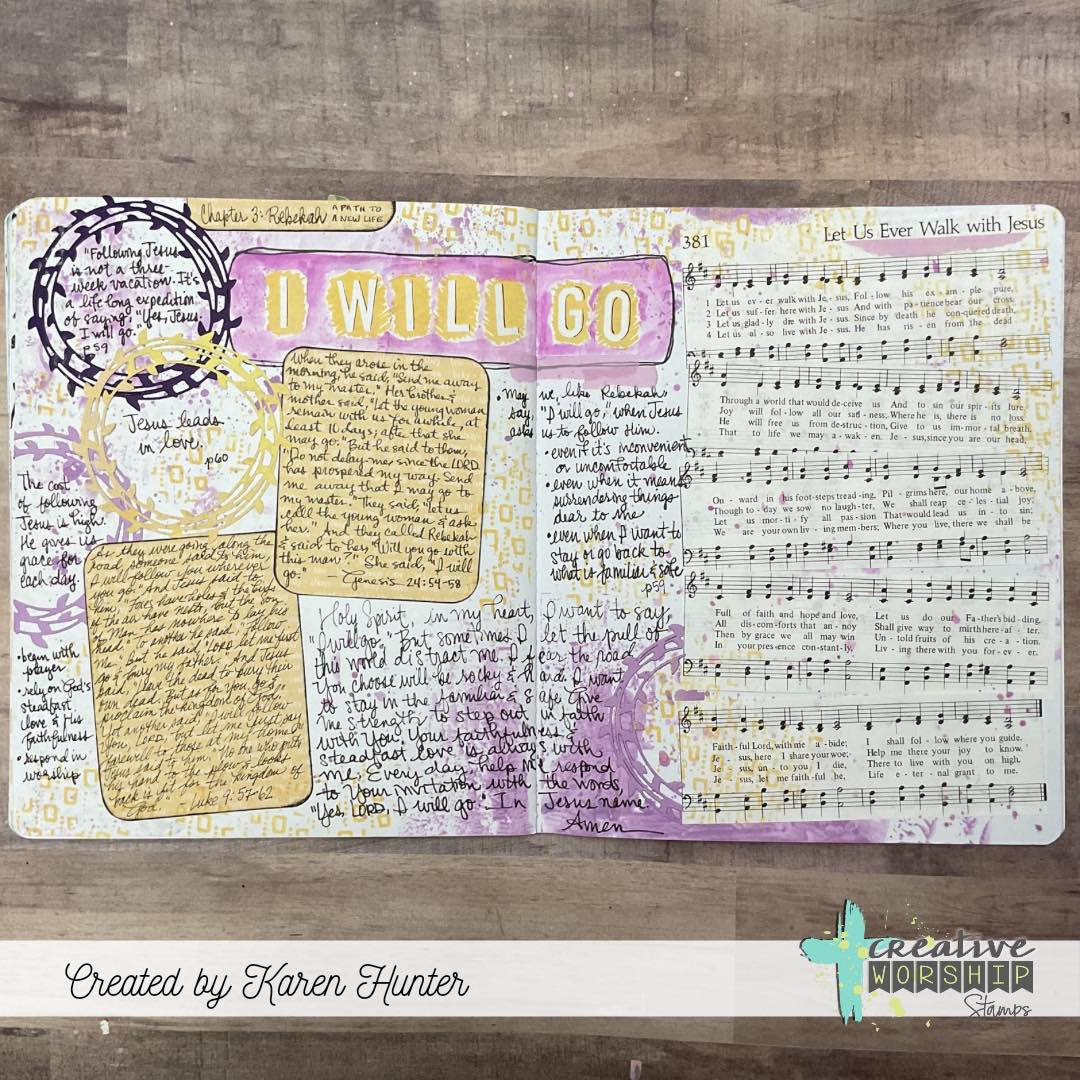 Chapter 3: Rebekah
A PATH TO
A NEW LIFE
"Following Jesus
is not a three
week vacation. It's
a life long expedition
of saying, "Yes, Jesus.
I will go."
p59
I WILL GO
Jesus leads
in love.
p60
The cost
of following
Jesus is high.
He gives us
grace for
each day.
• begin with
prayer
• rely on God's
steadfast
love & His
faithfulness
• respond in
worship
When they arose in the
morning, he said, "Send me away
to my master." Her brother &
mother said, "Let the young woman
remain with us for awhile, at
least 10 days; after that she
may go." But he said to them,
"Do not delay me since the LORD
has prospered my way. Send
me away that I may go to
my master." They said, "Let us
call the young woman & ask
her." And they called Rebekah
& said to her, "Will you go with
this man". She said, "I will
go."
— Genesis 24:54-58
As they were going along the
road, someone said to him,
"I will follow you wherever
you go." And Jesus said to
him, "Foxes have holes & the birds
of the air have nests, but the Son
of Man has nowhere to lay his
head." To another he said, "Follow
Me." But he said "Lord let me first
go & bury my father." And Jesus
said, "Leave the dead to bury their
own dead. But as for you, go &
proclaim the kingdom of God."
Yet another said "I will follow
You, Lord, but let me first say
farewell to those at my home."
Jesus said to him, "No one who puts
his hand to the plow & looks
back is fit for the kingdom of
God."
Luke 9:57-62
• May we, like Rebekah
say, "I will go," when Jesus
asks us to follow Him.
• even if it's inconvenient
or uncomfortable
• even when it means
surrendering things
dear to me
• even when I want to
stay or go back to
what is familiar & safe
p59
Holy Spirit, in my heart, I want to say,
"I will go." But sometimes I let the pull of
this world distract me. I fear the road
You choose will be rocky & hard. I want
to stay in the familiar & safe. Give
me strength to step out in faith
with You. Your faithfulness &
steadfast love is always with
me. Every day, help me respond
to Your invitation with the words,
"Yes, LORD. I will go." In Jesus name.
Amen
381
Let Us Ever Walk with Jesus
1 Let us ev - er walk with Je - sus, Fol - low his ex - am - ple pure,
2 Let us suf - fer here with Je - sus And with pa - tience bear our cross.
3 Let us glad - ly die with Je - sus. Since by death he con - quered death,
4 Let us al - so live with Je - sus. He has ris - en from the dead
Through a world that would de-ceive us And to sin our spir - its lure.
Joy will fol - low all our sad - ness; Where he is, there is no loss.
He will free us from de - struc - tion, Give to us im - mor - tal breath.
That to life we may a - wak - en. Je - sus, since you are our head,
On - ward in his foot-steps tread-ing, Pil - grims here, our home a - bove,
Though to - day we sow no laugh-ter, We shall reap ce - les - tial joy;
Let us mor - ti - fy all pas - sion That would lead us in - to sin;
We are your own liv - ing mem - bers; Where you live, there we shall be
Full of faith and hope and love, Let us do our Fa - ther's bid - ding.
All dis - com - forts that an - noy Shall give way to mirth here - af - ter.
Then by grace we all may win Un - told fruits of his cre - a - tion.
In your pres-ence con - stant - ly, Liv - ing there with you for - ev - er.
Faith - ful Lord, with me a - bide; I shall fol - low where you guide.
Je - sus, here I share your woe; Help me there your joy to know.
Je - sus, un - to you I die, There to live with you on high.
Je - sus, let me faith - ful be, Life e - ter - nal grant to me.
Created by Karen Hunter
creative
WORSHIP
Stamps